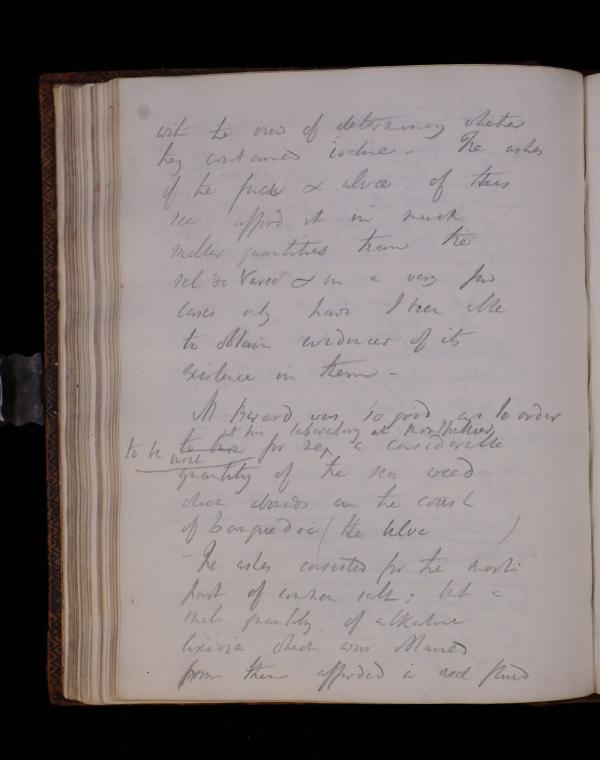 with the view of determining whether
they contained iodine - The ashes
of the fuci & ulvæ of this
sea afford it in much
smaller quantities than the
sel de Varec & in a very few
cases only have I been able
to obtain evidences of its
existence in them -
M Berard was so good as to order
at his laboratory at Montpellier
to be burnt to burn for me, a considerable
quantity of the sea weed
which abounds on the coast
of Languedoc (the Ulva )
- The ashes consisted for the most
part of common salt; but a
small quantity of alkaline
lixivia which was obtained
from them afforded a red fluid